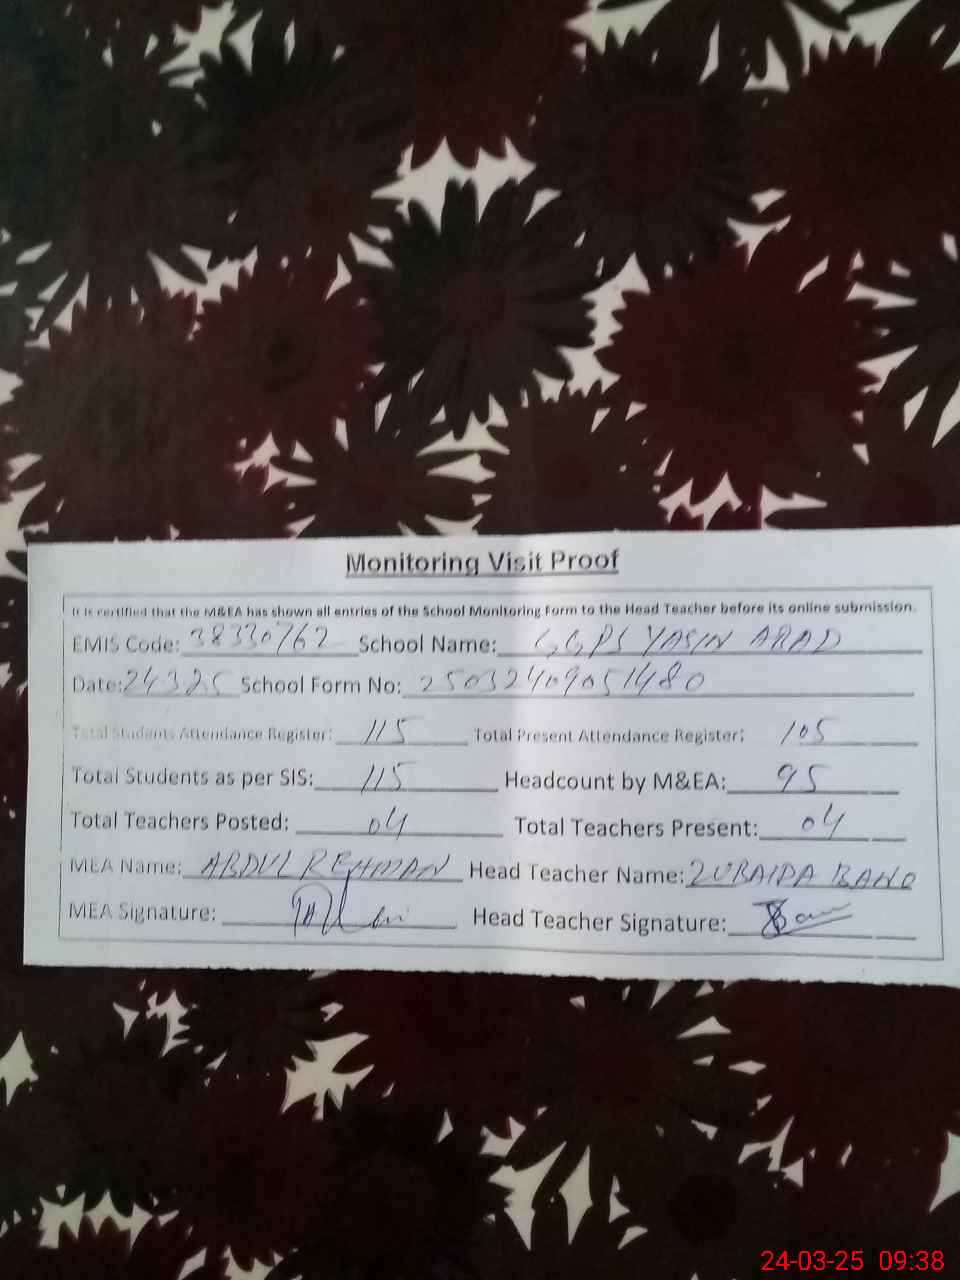 Monitoring Visit Proof
It is certified that the M&EA has shown all entries of the School Monitoring Form to the Head Teacher before its online submission.
EMIS Code: 38330762 School Name: GGPS YASIN ABAD
Date: 24.3.25 School Form No: 25032409051480
Total Students Attendance Register: 115 Total Present Attendance Register: 105
Total Students as per SIS: 115 Headcount by M&EA: 95
Total Teachers Posted: 04 Total Teachers Present: 04
MEA Name: ABDUL REHMAN Head Teacher Name: ZUBAIDA BANO
MEA Signature: Head Teacher Signature:
24-03-25 09:38